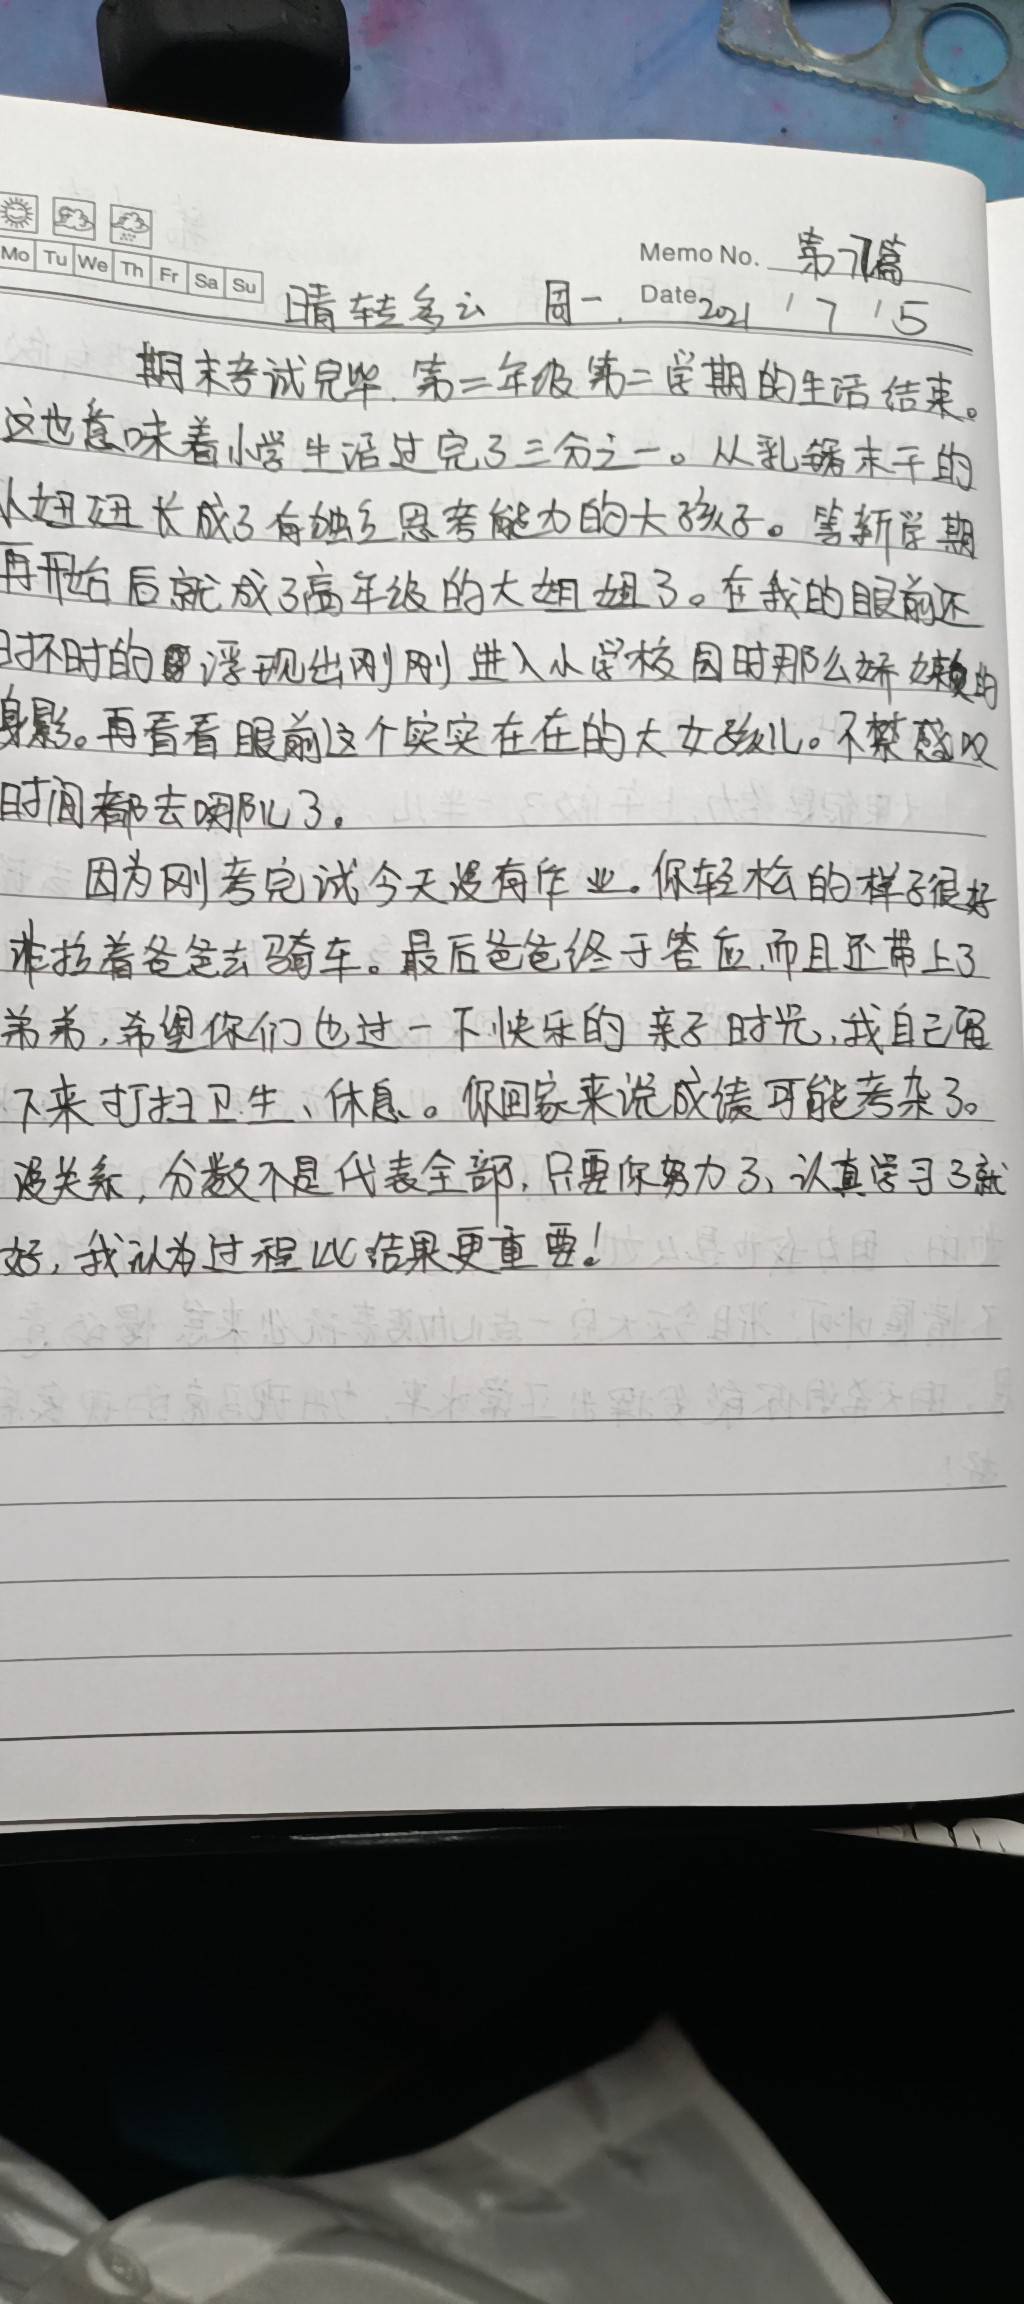 Mo Tu We Th Fr Sa Su
Memo No. 第71篇
晴转多云 周一. Date 2021 ' 7 ' 5
期末考试完毕.第二年级第二学期的生活结束。
这也意味着小学生活过完了三分之一。从乳臭未干的
小妞妞长成了有独立思考能力的大孩子。等新学期
再开始后就成了高年级的大姐姐了。在我的眼前还
时不时的浮现出刚刚进入小学校园时那么娇嫩的
身影。再看看眼前这个实实在在的大女孩儿。不禁感叹
时间都去哪儿了。
因为刚考完试今天没有作业。你轻松的样子很好
非拉着爸爸去骑车。最后爸爸终于答应,而且还带上了
弟弟,希望你们也过一下快乐的亲子时光,我自己留
下来打扫卫生、休息。你回家来说成绩可能考杂了。
没关系,分数不是代表全部,只要你努力了、认真学习了就
好,我认为过程比结果更重要!